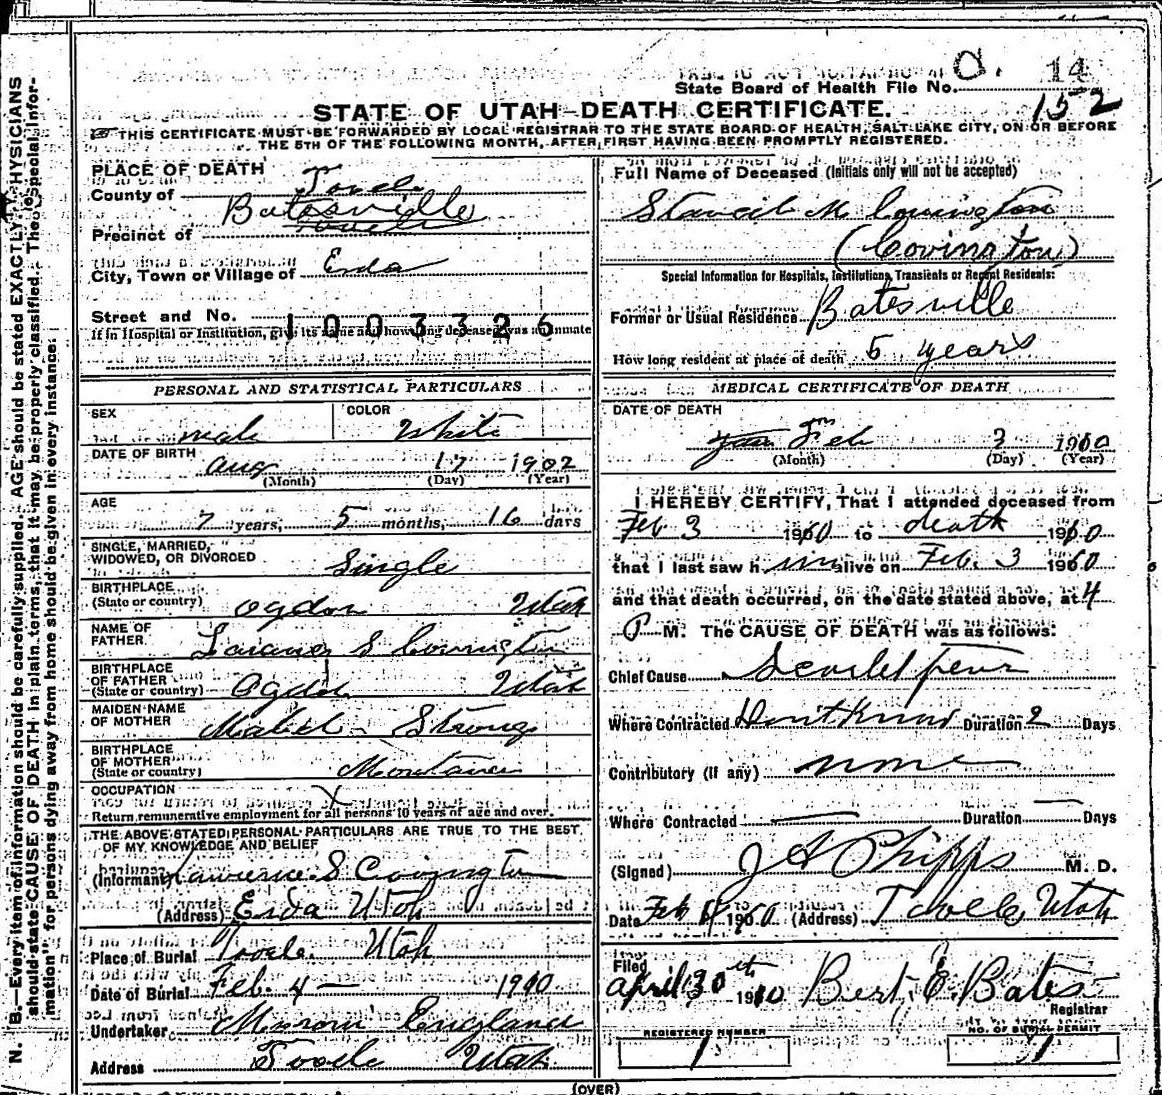 N. B.—Every item of information should be carefully supplied. AGE should be stated EXACTLY. PHYSICIANS
should state CAUSE OF DEATH in plain terms, that it may be properly classified. The "Special Infor-
mation" for persons dying away from home should be given in every instance.
O. 14
State Board of Health File No.
152
STATE OF UTAH—DEATH CERTIFICATE.
THIS CERTIFICATE MUST BE FORWARDED BY LOCAL REGISTRAR TO THE STATE BOARD OF HEALTH, SALT LAKE CITY, ON OR BEFORE
THE 5TH OF THE FOLLOWING MONTH, AFTER FIRST HAVING BEEN PROMPTLY REGISTERED.
PLACE OF DEATH
County of Tooele
Batesville
Precinct of Tooele
City, Town or Village of Erda
Street and No.
1003326
If in Hospital or Institution, give its name and how long deceased was inmate
Full Name of Deceased (Initials only will not be accepted)
M Covington
(Covington)
Special Information for Hospitals, Institutions, Transients or Recent Residents:
Former or Usual Residence Batesville
How long resident at place of death 5 years
PERSONAL AND STATISTICAL PARTICULARS
SEX male
COLOR White
DATE OF BIRTH Aug 17 1902
(Month) (Day) (Year)
AGE
7 years, 5 months, 16 days
SINGLE, MARRIED,
WIDOWED, OR DIVORCED Single
BIRTHPLACE
(State or country) Ogden Utah
NAME OF
FATHER S Covington
BIRTHPLACE
OF FATHER
(State or country) Ogden Utah
MAIDEN NAME
OF MOTHER Mabel Strong
BIRTHPLACE
OF MOTHER
(State or country) Montana
OCCUPATION X
Return remunerative employment for all persons 10 years of age and over.
THE ABOVE STATED PERSONAL PARTICULARS ARE TRUE TO THE BEST
OF MY KNOWLEDGE AND BELIEF
(Informant) Lawrence S Covington
(Address) Erda Utah
Place of Burial Tooele Utah
Date of Burial Feb. 4 — 1910
Undertaker England
Address Tooele Utah
MEDICAL CERTIFICATE OF DEATH
DATE OF DEATH
Jan Feb 3 1910
(Month) (Day) (Year)
I HEREBY CERTIFY, That I attended deceased from
Feb 3 1910 to death 1910
that I last saw him alive on Feb. 3 1910
and that death occurred, on the date stated above, at 4
P M. The CAUSE OF DEATH was as follows:
Chief Cause Scarlet fever
Where Contracted Don't Know Duration 2 Days
Contributory (if any) none
Where Contracted — Duration — Days
(Signed) J A Phipps M. D.
Date Feb 1910 (Address) Tooele, Utah
Filed
April 30th 1910 Bert E. Bates
Registrar
REGISTERED NUMBER
1
NO. OF BURIAL PERMIT
1
(OVER)